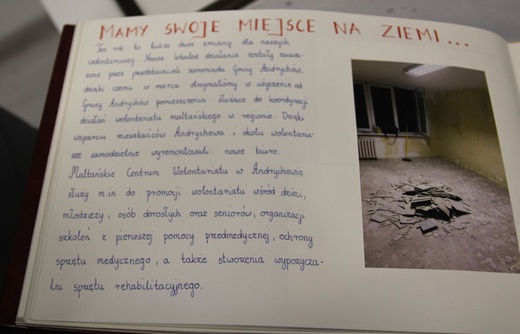 MAMY SWOJE MIEJSCE NA ZIEMI...
Ten rok to także duże zmiany dla naszych
wolontariuszy. Nasze lokalne działania zostały zauwa-
żone przez przedstawicieli samorządu Gminy Andrychów,
dzięki czemu w marcu otrzymaliśmy w użyczenie od
Gminy Andrychów pomieszczenia służące do koordynacji
działań wolontariatu maltańskiego w regionie. Dzięki
wsparciu mieszkańców Andrychowa i okolic wolontariu-
sze samodzielnie wyremontowali nowe biuro.
Maltańskie Centrum Wolontariatu w Andrychowie
służy m.in do promocji wolontariatu wśród dzieci,
młodzieży, osób dorosłych oraz seniorów, organizacji
szkoleń z pierwszej pomocy przedmedycznej, ochrony
sprzętu medycznego, a także stworzenia wypożycza-
lni sprzętu rehabilitacyjnego.